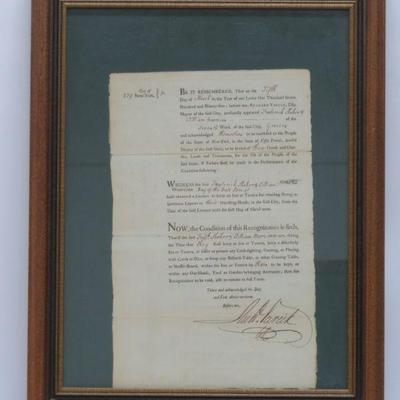 City of
New-York,
BE IT REMEMBERED, That on the Fifth
Day of March in the Year of our Lord One Thousand Seven
Hundred and Ninety- before me, RICHARD VARICK, Esq.
Mayor of the said City, personally appeared Frederick
William of the
Ward of the said City, Grocer
and acknowledged themselves to be indebted to the People
of the State of New-York, in the Sum of Fifty Pounds, lawful
Money of the said State, to be levied of their Goods and Chat-
tels, Lands and Tenements, for the Use of the People of the
said State, if Failure shall be made in the Performance of the
Condition following:
WHEREAS the said Frederick William
Day of the Date hereof
hath obtained a Licence to keep an Inn or Tavern for retailing strong or
spirituous Liquors at their Dwelling-House, in the said City, from the
Date of the said Licence until the first Day of March next.
NOW, the Condition of this Recognizance is such,
That if the said William during
the Time that they shall keep an Inn or Tavern, keep a disorderly
Inn or Tavern, or suffer or permit any Cock-fighting, Gaming, or Playing
with Cards or Dice, or keep any Billiard-Table, or other Gaming Table,
or Shuffle-Board, within the Inn or Tavern by them to be kept, or
within any Out-House, Yard or Garden belonging thereunto; then this
Recognizance to be void, else to remain in full Force.
Taken and acknowledged the Day
and Year above-written.
Before me,
Richd. Varick